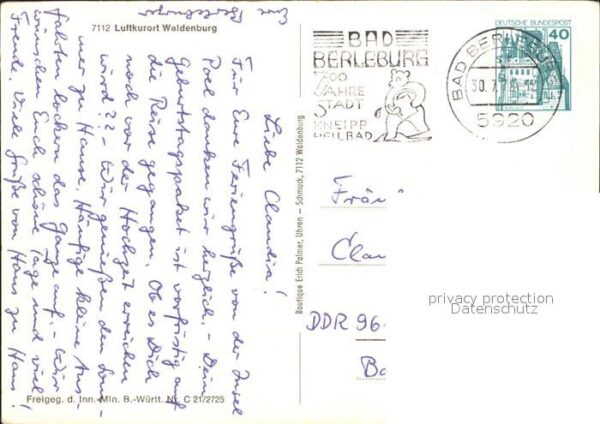 7112 Luftkurort Waldenburg
Liebe Claudia!
Für Eure Feriengrüße von der Insel
Poel danken wir herzlich. - Dein
Geburtstagspaket ist vorfristig auf
die Reise gegangen. Ob es Dich
noch vor der Hochzeit erreichen
wird?? - Wir genießen den Som-
mer zu Hause. Häufige kleine Aus-
fahrten lockern das Ganze auf. - Wir
wünschen Euch schöne Tage und viel
Freude. Viele Grüße von Haus zu Haus!
Eure
Freigeg. d. Inn.-Min. B.-Württ. Nr. C 21/2725
Boutique Erich Palmer, Uhren - Schmuck, 7112 Waldenburg
BAD
BERLEBURG
700
JAHRE
STADT
KNEIPP
HEILBAD
BAD BERLEBURG
30.7.
5920
DEUTSCHE BUNDESPOST
40
Frä
Clau
DDR 96
Ba
privacy protection
Datenschutz